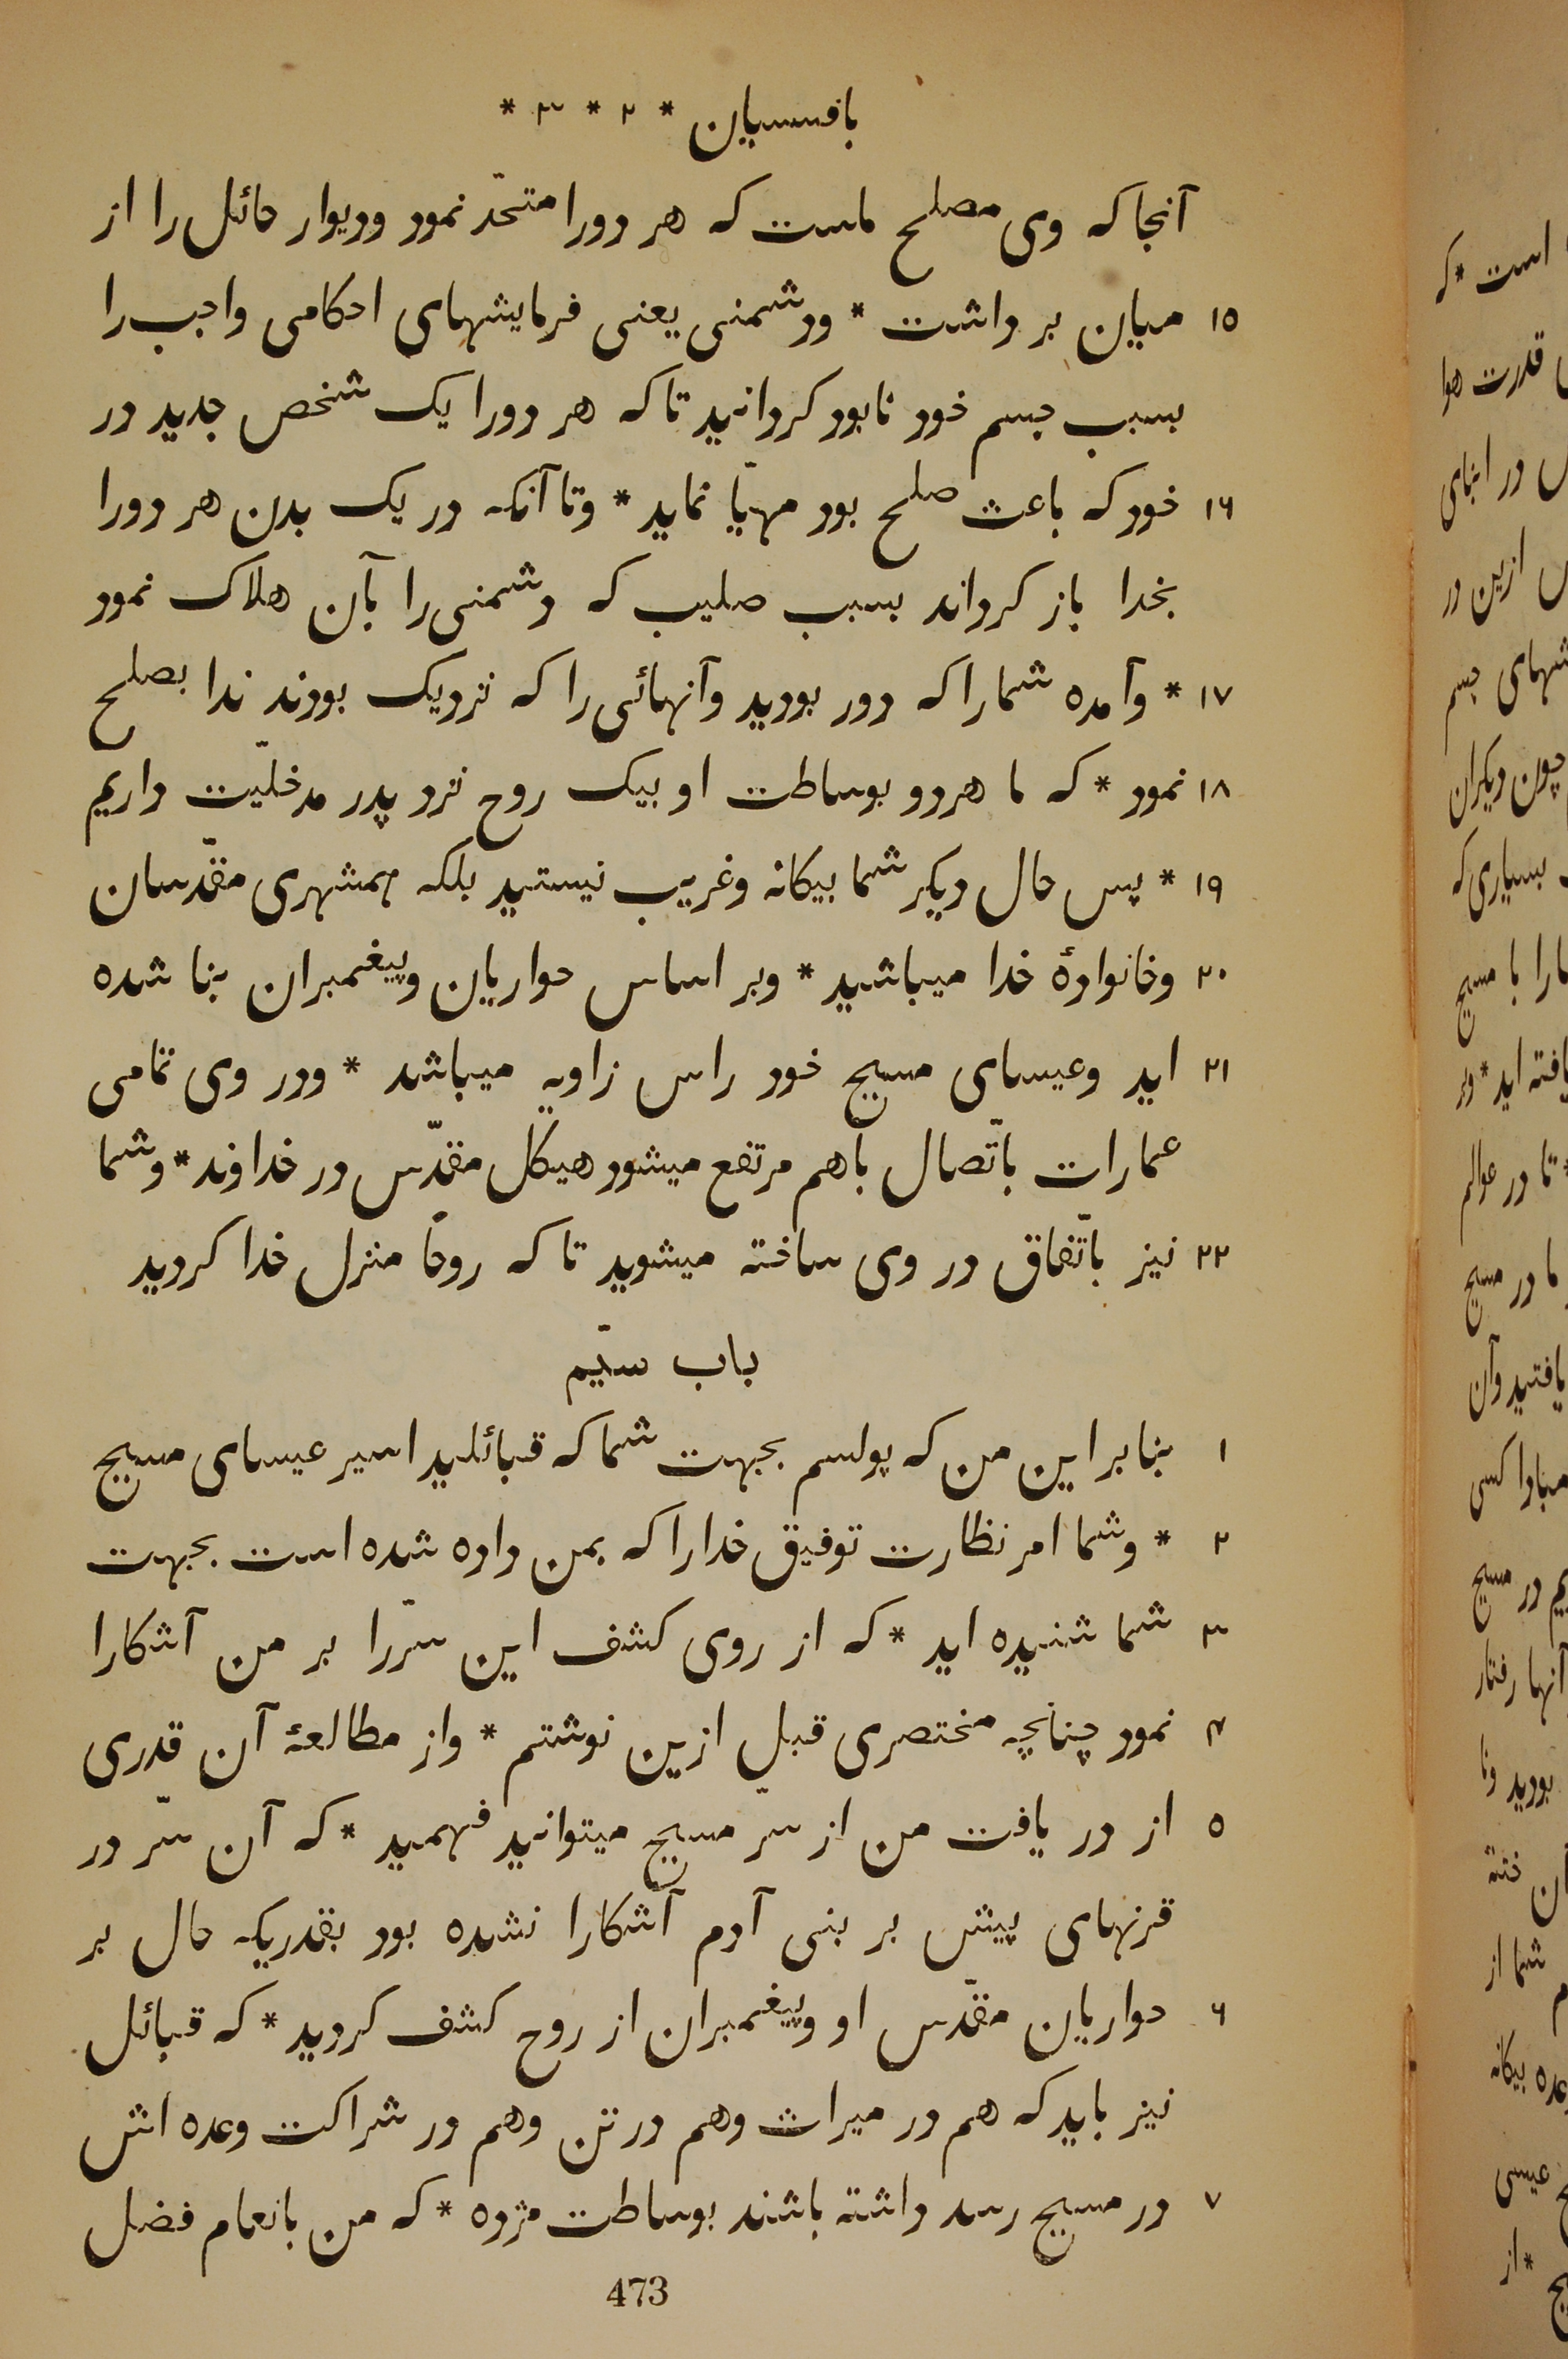 بافسسیان * ۲ * ۳ *
آنجا که وی مصلح ماست که هر دورا متحّد نمود ودیوار حائل را از
۱۵ میان بر داشت * ودشمنی یعنی فرمایشهای احکامی واجب را
بسبب جسم خود نابود کردانید تا که هر دورا یک شخص جدید در
۱۶ خود که باعث صلح بود مهیّا نماید * وتا آنکه در یک بدن هر دورا
بخدا باز کرداند بسبب صلیب که دشمنی را بآن هلاک نمود
۱۷ * وآمده شمارا که دور بودید وآنهائی را که نزدیک بودند ندا بصلح
۱۸ نمود * که ما هردو بوساطت او بیک روح نزد پدر مدخلیّت داریم
۱۹ * پس حال دیکر شما بیکانه وغریب نیستید بلکه همشهری مقدّسان
۲۰ وخانوادهٔ خدا میباشید * وبر اساس حواریان وپیغمبران بنا شده
۲۱ اید وعیسای مسیح خود راس زاویه میباشد * ودر وی تمامی
عمارات باتّصال باهم مرتفع میشود هیکل مقدّس در خداوند * وشما
۲۲ نیز باتّفاق در وی ساخته میشوید تا که روحًا منزل خدا کردید
باب سیّم
۱ بنا بر این من که پولسم بجهت شما که قبائلید اسیر عیسای مسیح
۲ * وشما امر نظارت توفیق خدارا که بمن داده شده است بجهت
۳ شما شنیده اید * که از روی کشف این سرّرا بر من آشکارا
۴ نمود چنانچه مختصری قبل ازین نوشتم * واز مطالعهٔ آن قدری
۵ از در یافت من از سرّ مسیح میتوانید فهمید * که آن سرّ در
قرنهای پیش بر بنی آدم آشکارا نشده بود بقدریکه حال بر
۶ حواریان مقدّس او وپیغمبران از روح کشف کردید * که قبائل
نیز باید که هم در میراث وهم در تن وهم در شراکت وعده اش
۷ در مسیح رسد داشته باشند بوساطت مژده * که من بانعام فضل
473